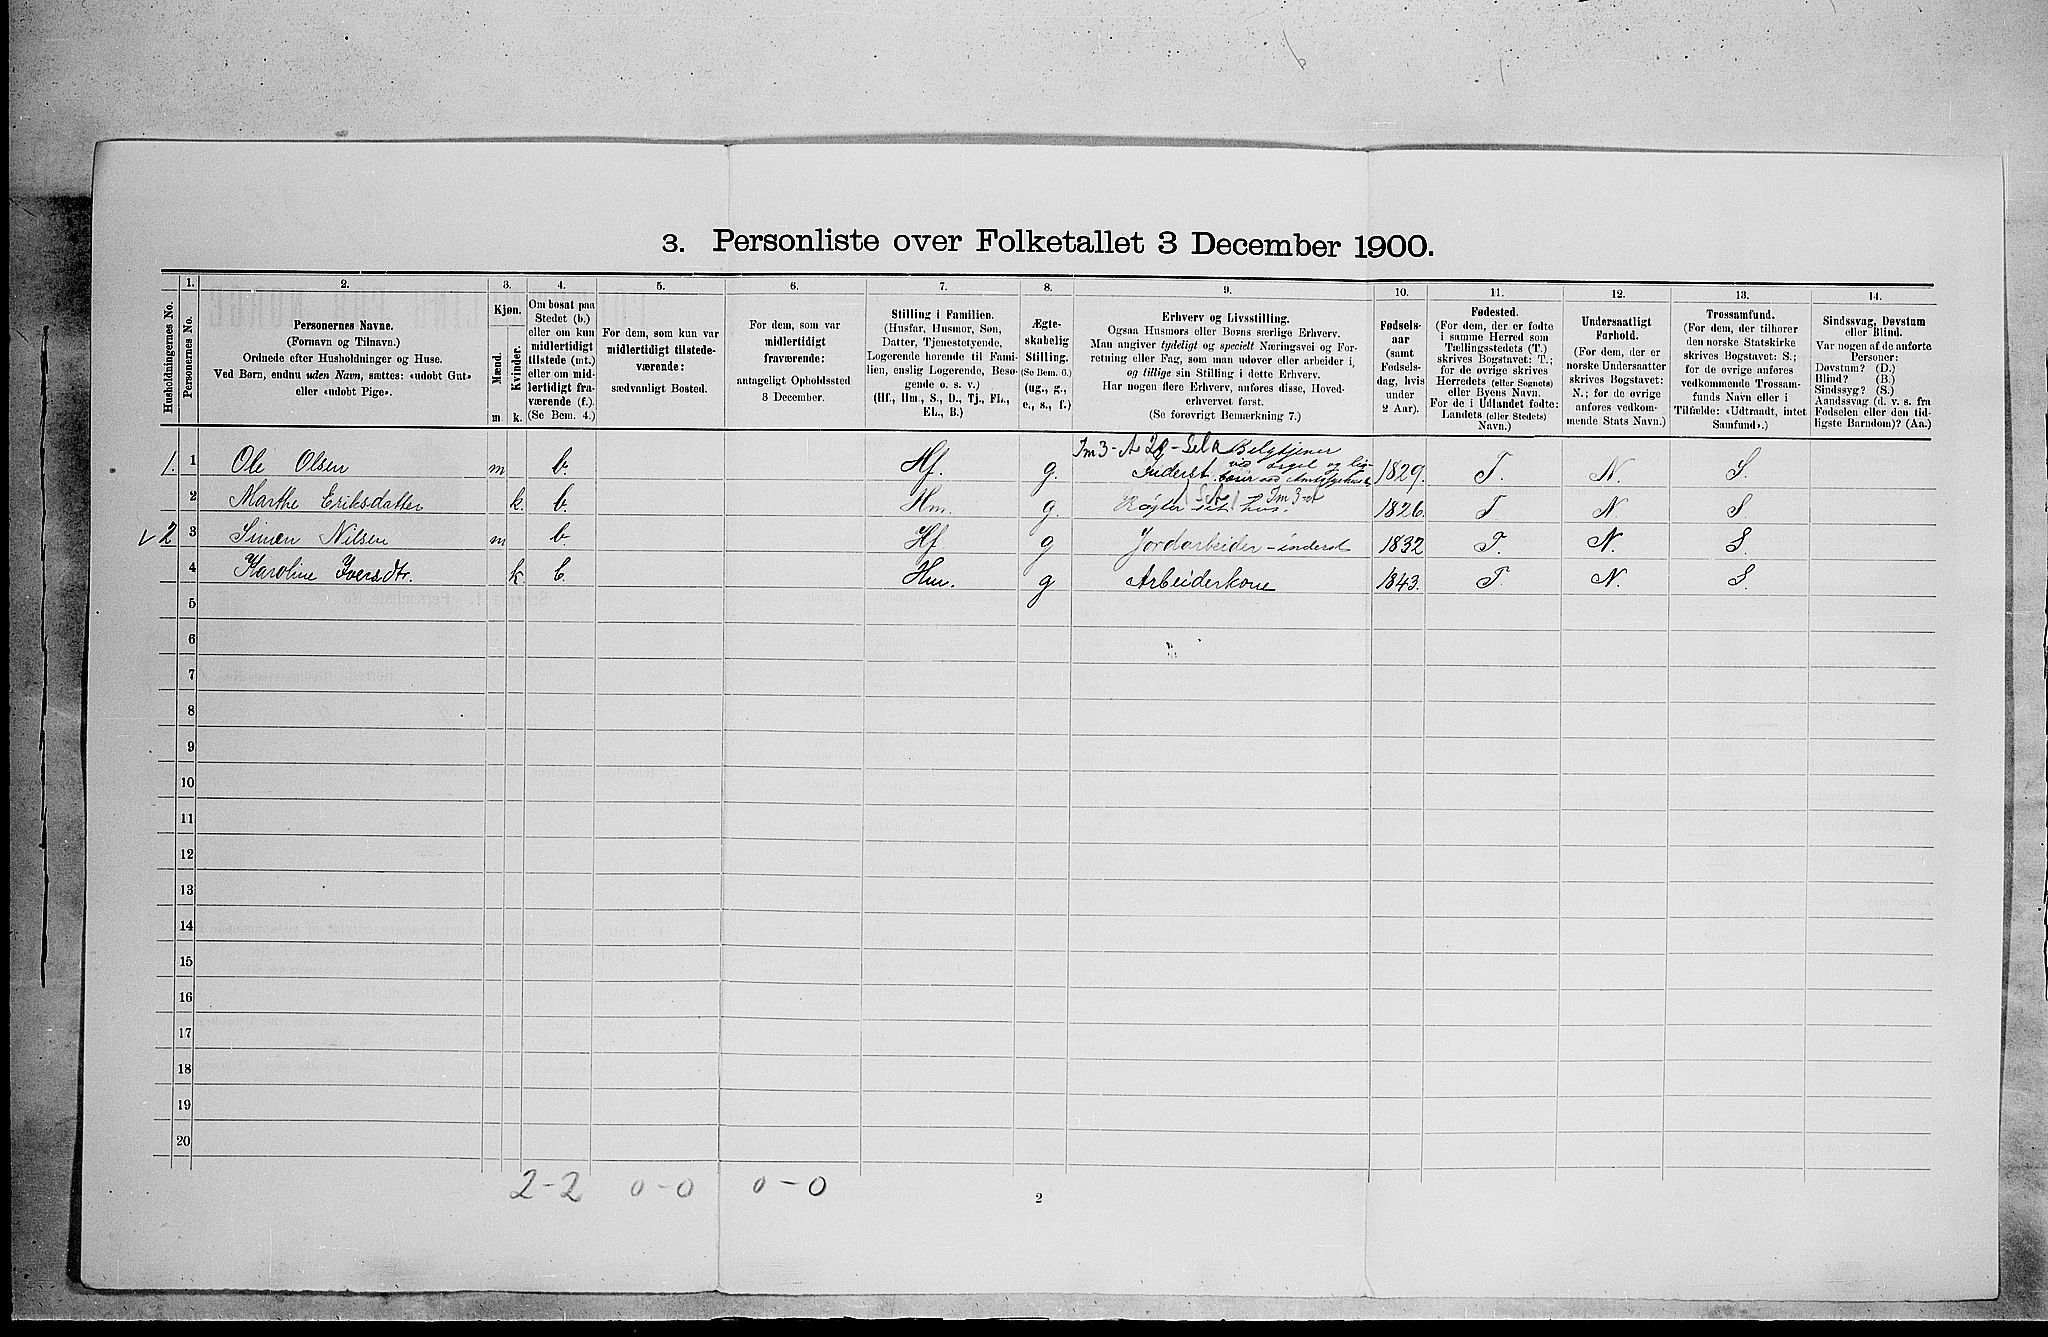 3. Personliste over Folketallet 3 December 1900.
Husholdningernes No.
1.
Personernes No.
2.
Personernes Navne.
(Fornavn og Tilnavn.)
Ordnede efter Husholdninger og Huse.
Ved Børn, endnu uden Navn, sættes: «udøbt Gut»
eller «udøbt Pige».
3.
Kjøn.
Mænd.
Kvinder.
m. k.
4.
Om bosat paa
Stedet (b.)
eller om kun
midlertidigt
tilstede (mt.)
eller om mid-
lertidigt fra-
værende (f.).
(Se Bem. 4.)
5.
For dem, som kun var
midlertidigt tilstede-
værende:
sædvanligt Bosted.
6.
For dem, som var
midlertidigt
fraværende:
antageligt Opholdssted
3 December.
7.
Stilling i Familien.
(Husfar, Husmor, Søn,
Datter, Tjenestetyende,
Logerende hørende til Fami-
lien, enslig Logerende, Besø-
gende o. s. v.)
(Hf., Hm., S., D., Tj., FL.,
EL., B.)
8.
Ægte-
skabelig
Stilling.
(Se Bem. 6.)
(ug., g.,
e., s., f.)
9.
Erhverv og Livsstilling.
Ogsaa Husmors eller Børns særlige Erhverv.
Man angiver tydeligt og specielt Næringsvei og For-
retning eller Fag, som man udøver eller arbeider i,
og tillige sin Stilling i dette Erhverv.
Har nogen flere Erhverv, anføres disse, Hoved-
erhvervet først.
(Se forøvrigt Bemærkning 7.)
10.
Fødsels-
aar
(samt
Fødsels-
dag, hvis
under
2 Aar).
11.
Fødested.
(For dem, der er fødte
i samme Herred som
Tællingsstedets (T.)
skrives Bogstavet: T.;
for de øvrige skrives
Herredets (eller Sognets)
eller Byens Navn.
For de i Udlandet fødte:
Landets (eller Stedets)
Navn.)
12.
Undersaatligt
Forhold.
(For dem, der er
norske Undersaatter
skrives Bogstavet:
N.; for de øvrige
anføres vedkom-
mende Stats Navn.)
13.
Trossamfund.
(For dem, der tilhører
den norske Statskirke
skrives Bogstavet: S.;
for de øvrige anføres
vedkommende Trossam-
funds Navn eller i
Tilfælde: «Udtraadt, intet
Samfund».)
14.
Sindssvag, Døvstum
eller Blind.
Var nogen af de anførte
Personer:
Døvstum? (D.)
Blind? (B.)
Sindssyg? (S.)
Aandssvag (d. v. s. fra
Fødselen eller den tid-
ligste Barndom)? (Aa.)
1. 1 Ole Olsen m b. Hf. g. Inderst. Belgtjener 1829. T. N. S.
2 Marthe Eriksdatter k. b. Hm. g. Røgter sit hus. 1826. T N S
2 3 Simen Nilsen m b. Hf g Jordarbeider - inderst 1832 T. N. S.
4 Karoline Iversdtr. k b. Hm. g Arbeiderkone 1843. T. N. S.
5
6
7
8
9
10
11
12
13
14
15
16
17
18
19
20
2-2 0-0 0-0
2